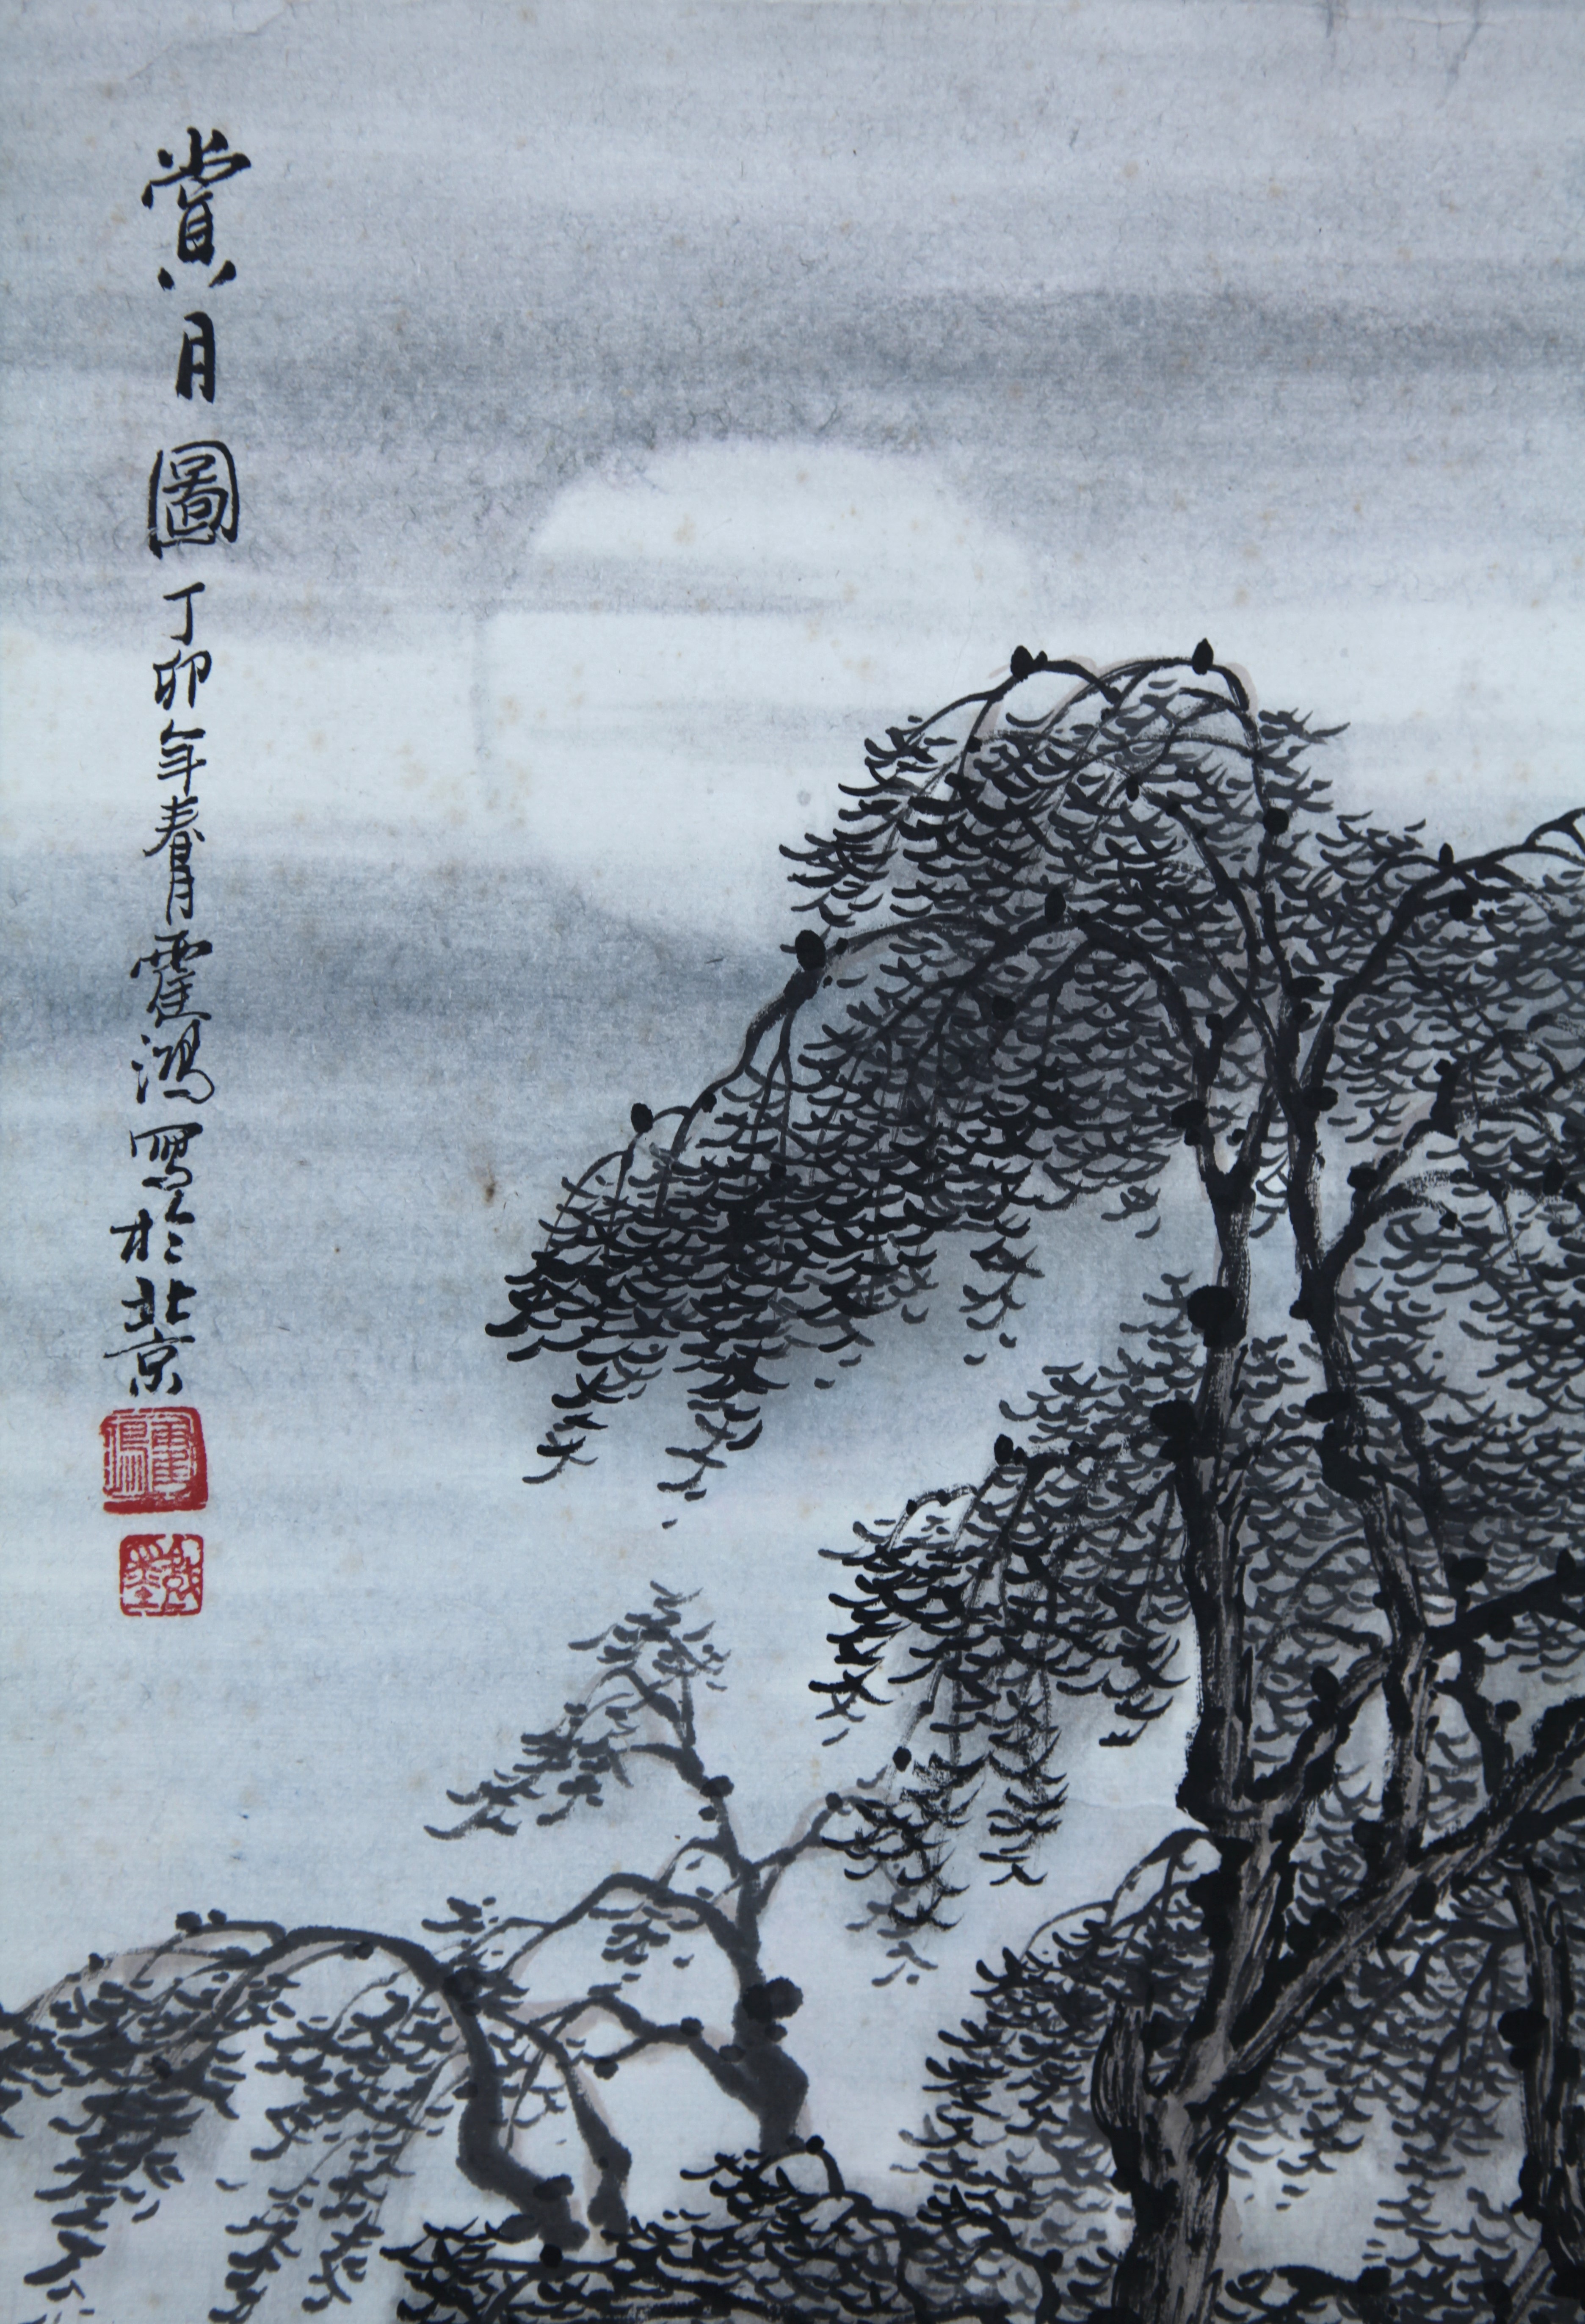 賞月圖丁卯年春月霍鴻寫於北京